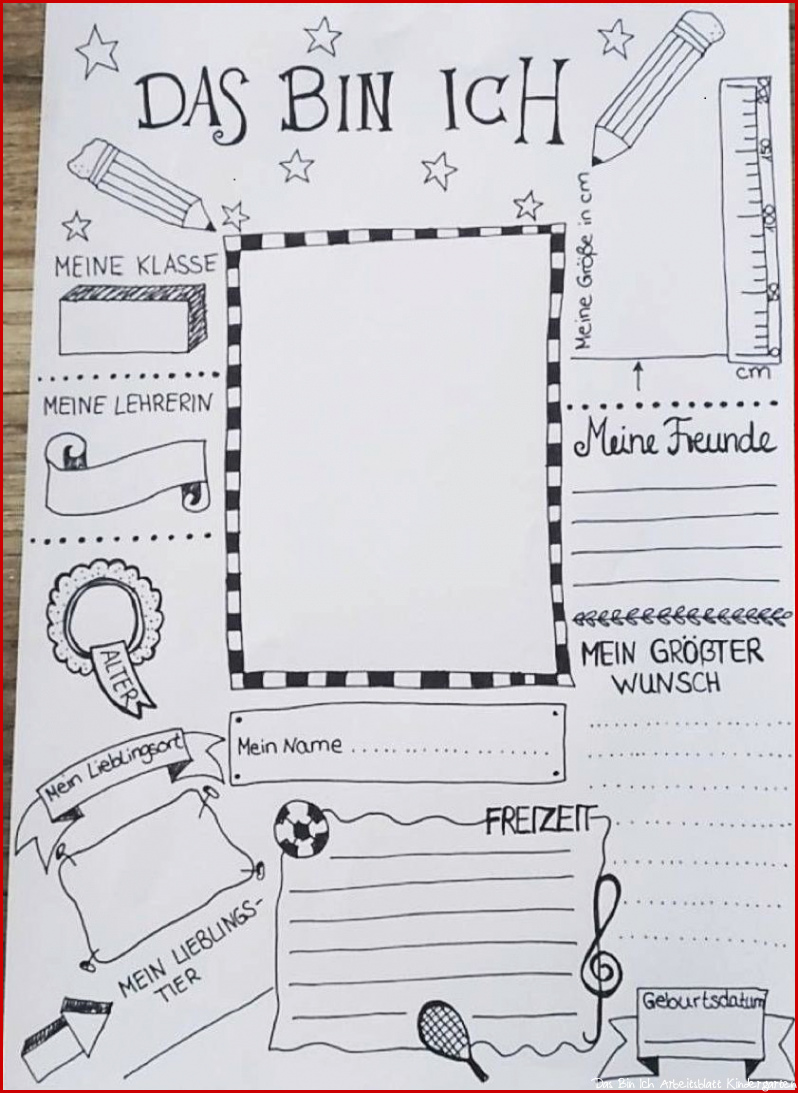 DAS BIN ICH
MEINE KLASSE
MEINE LEHRERIN
ALTER
Mein Lieblingsort
MEIN LIEBLINGS-
TIER
Mein Name ......................
FREIZEIT
Meine Größe in cm
200
150
100
50
0
cm
Meine Freunde
MEIN GRÖßTER
WUNSCH
Geburtsdatum
Das Bin Ich Arbeitsblatt Kindergarten